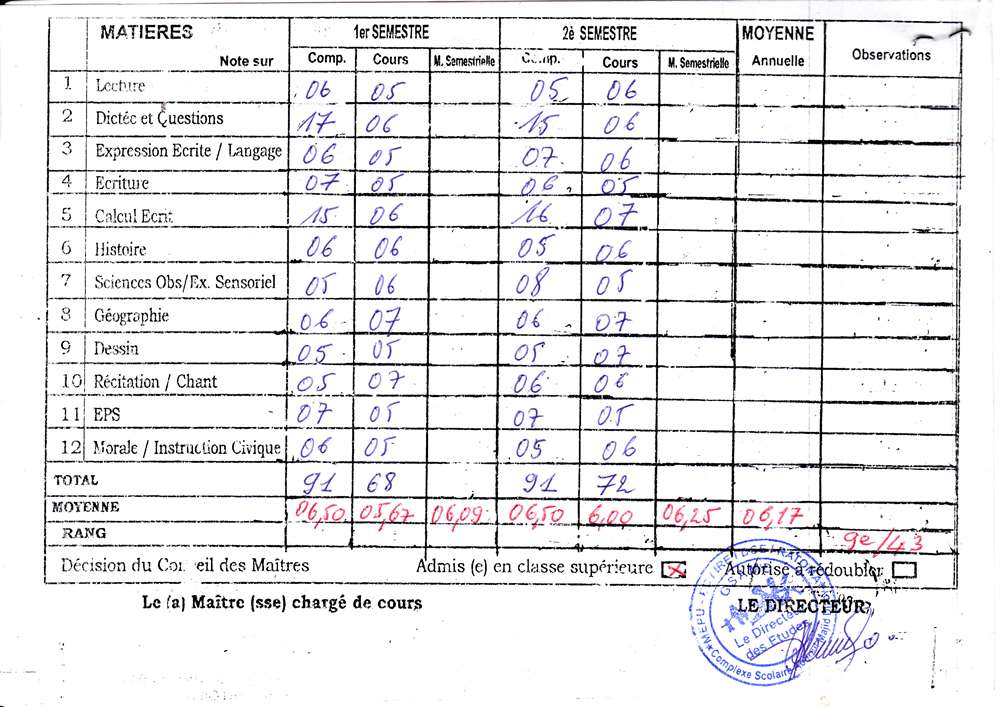 MATIERES 1er SEMESTRE 2è SEMESTRE MOYENNE Observations
Note sur Comp. Cours M. Semestrielle Comp. Cours M. Semestrielle Annuelle
1 Lecture 06 05 05 06
2 Dictée et Questions 17 06 15 06
3 Expression Ecrite / Langage 06 05 07 06
4 Ecriture 07 05 06 05
5 Calcul Ecrit 15 06 16 07
6 Histoire 06 06 05 06
7 Sciences Obs/Ex. Sensoriel 05 06 08 05
8 Géographie 06 07 06 07
9 Dessin 05 05 05 07
10 Récitation / Chant 05 07 06 06
11 EPS 07 05 07 05
12 Morale / Instruction Civique 06 05 05 06
TOTAL 91 68 91 72
MOYENNE 06,50 05,67 06,09 06,50 6,00 06,25 06,17
RANG 9e/43
Décision du Conseil des Maîtres Admis (e) en classe supérieure X Autorisé à rédoubler
Le (a) Maître (sse) chargé de cours LE DIRECTEUR
Le Directeur
des Etudes
Complexe Scolaire